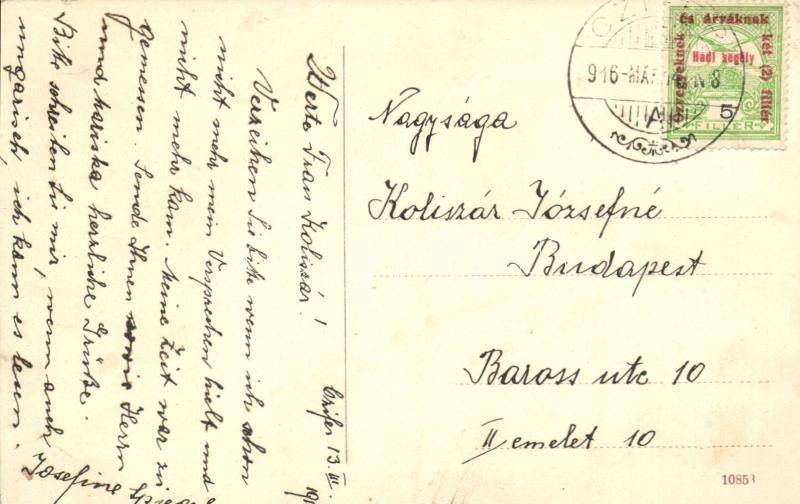 Czifer 13. III.
Werte Frau Koliszár!
Verzeihen Sie bitte wenn ich schon
nicht mehr mein Versprechen hielt und
nicht mehr kam. Meine Zeit war zu
gemessen. Sende Ihnen sowie Herrn
und Mariska herzliche Grüsse.
Bitte schreiben Sie mir, wenn auch
ungarisch, ich kann es lesen.
Josefine
Nagysága
Koliszár Józsefné
Budapest
Baross utc 10
II emelet 10
özvegyeknek és árváknak két (2) fillér
Hadi segély
916-MÁR
A
5
FILLER
10853